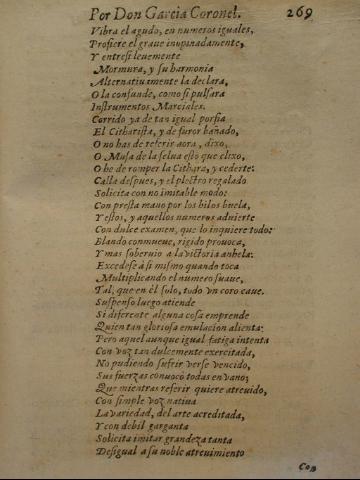 Por Don Garcia Coronel. 269
Vibra el agudo, en numeros iguales,
Profiere el graue inopinadamente,
Y entresi leuemente
Mormura, y su harmonia
Alternatiuamente la declara,
O la confunde, como si pulsara
Instrumentos Marciales.
Corrido ya de tan igual porfia
El Citharista, y de furor bañado,
O no has de referir aora, dixo,
O Musa de la selua esto que elixo,
O he de romper la Cithara, y cederte:
Calla despues, y el plectro regalado
Solicita con no imitable modo:
Con presta mano por los hilos buela,
Y estos, y aquellos numeros aduierte
Con dulce examen, que lo inquiere todo:
Blando conmueue, rigido prouoca,
Y mas soberuio a la victoria anhela:
Excedese à si mismo quando toca
Multiplicando el numero suaue,
Tal, que en èl solo, todo vn coro caue.
Suspenso luego atiende
Si diferente alguna cosa emprende
Quien tan gloriosa emulacion alienta:
Pero aquel aunque igual fatiga intenta
Con voz tan dulcemente exercitada,
No pudiendo sufrir verse vencido,
Sus fuerzas conuocò todas en vano;
Que mientras referir quiere atreuido,
Con simple voz natiua
La variedad, del arte acreditada,
Y con debil garganta
Solicita imitar grandeza tanta
Desigual a su noble atreuimiento
Con